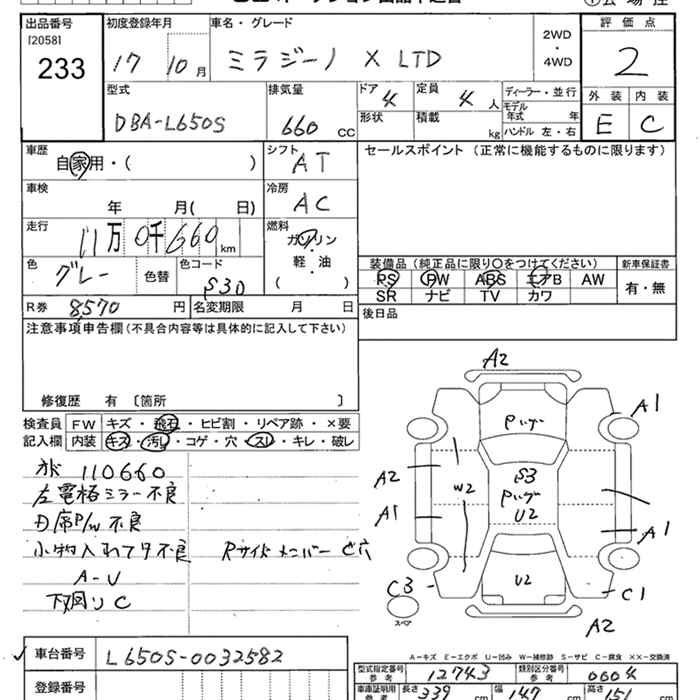 出品番号 初度登録年月 車名・グレード 評価点
[2058]
233 17 10月 ミラジーノ X LTD 2WD ・ 4WD 2
型式 排気量 ドア 4 定員 4人 ディーラー・並行 外装 内装
DBA-L650S 660 CC 形状 積載 kg モデル年式 年 ハンドル 左・右 E C
車歴 自家用・( ) シフト AT セールスポイント (正常に機能するものに限ります)
車検 年 月( 日) 冷房 AC
走行 11万 0千 660 km 燃料 ガソリン
軽・油
( )
色 グレー 色替 色コード S30 装備品 (純正品に限り○をつけてください) 新車保証書
PS PW ABS エアB AW 有・無
SR ナビ TV カワ
R券 8,570 円 名変期限 月 日 後日品
注意事項申告欄(不具合内容等は具体的に記入して下さい)
修復歴 有 〔箇所 〕
検査員 FW キズ・飛石・ヒビ割・リペア跡・×要
記入欄 内装 キズ・汚れ・コゲ・穴・スレ・キレ・破レ
110660
左電格ミラー不良
P/W 不良
小物入れフタ不良 Rサイドメンバー 穴
A-U
下回りC
A2
A1
A2
W2
A1
S3
U2
A1
U2
C3
スペア
C1
A2
A-キズ E-エクボ U-凹み W-補修跡 S-サビ C-腐食 ××-交換済
車台番号 L650S-0032582
登録番号
型式指定番号 参考 12743 類別区分番号 参考 0604
車庫証明用 参考 長さ 339 cm 幅 147 cm 高さ 151 cm